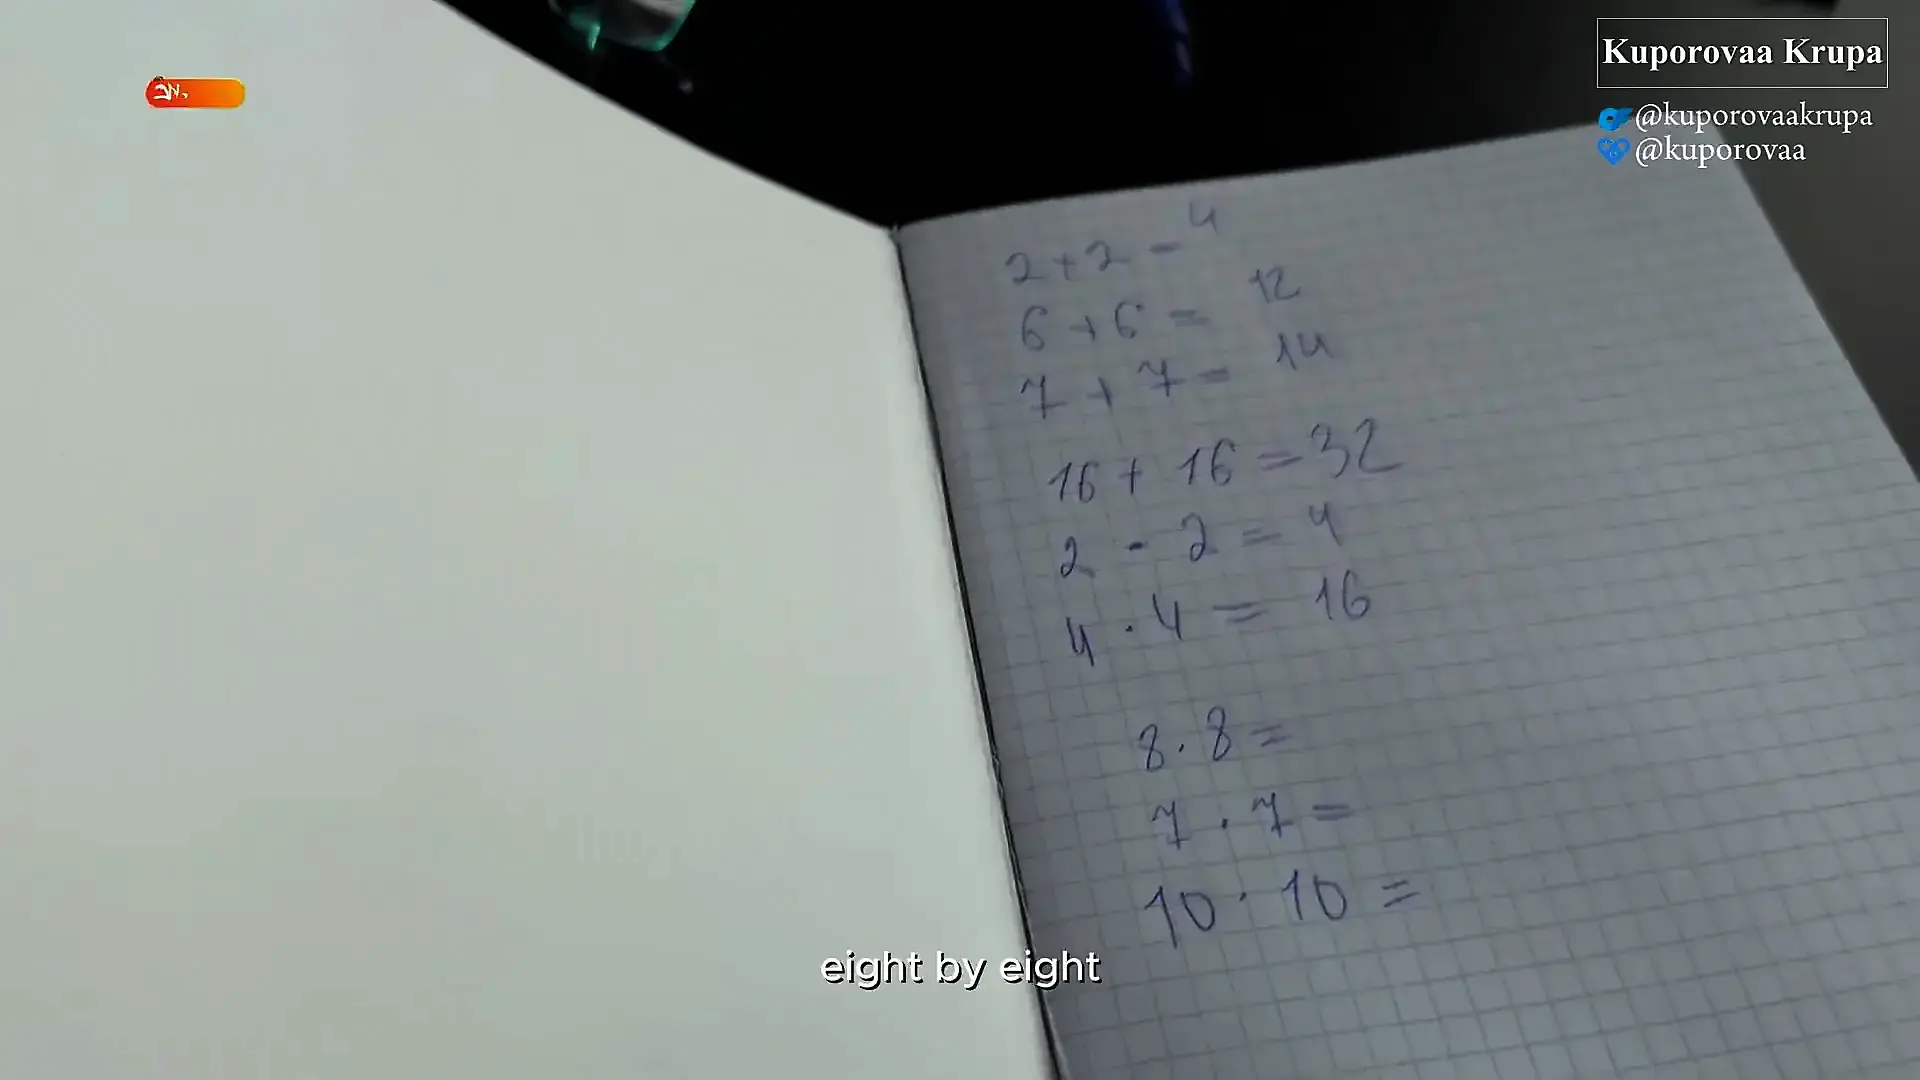 Kuporovaa Krupa
@kuporovaakrupa
@kuporovaa
2 + 2 - 4
6 + 6 = 12
7 + 7 = 14
16 + 16 = 32
2 - 2 = 4
4 · 4 = 16
8 · 8 =
7 · 7 =
10 · 10 =
eight by eight